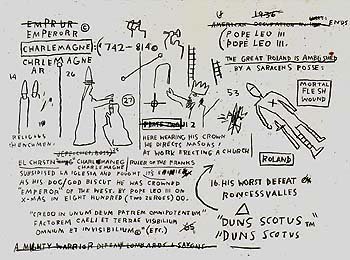 EMPRUR ©
EMPERORR
CHARLEMAGNE: (742-814©
CHRLEMAGNE
AR
14
26
27
24
RELIGEOUS
PHENOMEN:
EL CHRSTN "CHARLEMANEG" RULER OF THE FRANKS
SUBSIDISED LA IGLESIA AND FOUGHT
AS HIS DOG/ GOD BISCUT HE WAS CROWNED
"EMPEROR" OF THE WEST. BY POPE LEO III ON
X-MAS IN EIGHT HUNDRED (TWO ZEROES) 00.
"CREDO IN UNUM DEUM PATREM OMNIPOTENTUM"
FACTOREM CAELI ET TERRAE VISIBILIUM
OMNIUM ET INVISIBILIUM © (ETC.)
A MIGHTY WARRIOR LOMBARDS + SAXONS
HERE WEARING HIS CROWN
HE DIRECTS MASONS
AT WORK ERECTING A CHURCH
1936
AMERICAN OCCUPATION ENDS
POPE LEO III
(POPE LEO III.
THE GREAT ROLAND IS AMBUSHED
BY A SARACEN POSSE:
53
MORTAL
FLESH
WOUND
ROLAND
16. HIS WORST DEFEAT @
RONCESSVALLES
"DUNS SCOTUS"™
"DUNS SCOTUS